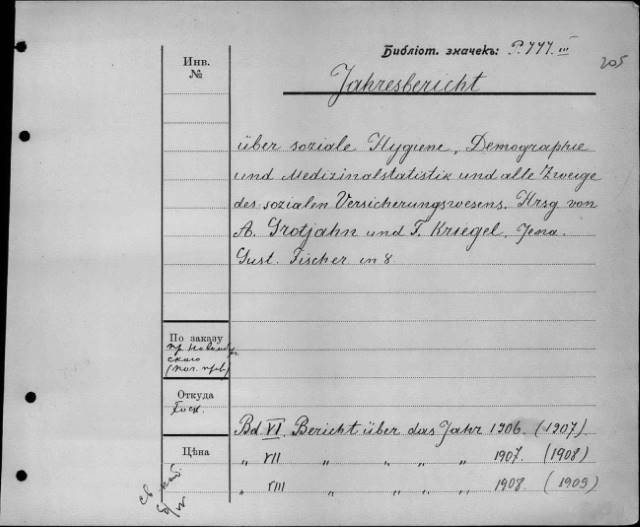 Библіот. значекъ: P.777.III
205
Инв.
№
Jahresbericht
über soziale Hygiene, Demographie
und Medizinalstatistik und alle Zweige
des sozialen Versicherungswesens. Hrsg von
A. Grotjahn und F. Kriegel. Jena.
Gust. Fischer in 8
По заказу
Откуда
Bd. VI. Bericht über das Jahr 1906. (1907)
Цѣна
„ VII „ „ „ 1907. (1908)
„ VIII „ „ „ 1908. (1909)